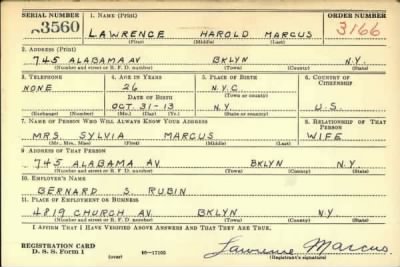 SERIAL NUMBER 1. NAME (Print) ORDER NUMBER
3560 LAWRENCE HAROLD MARCUS 3166
(First) (Middle) (Last)
2. ADDRESS (Print)
745 ALABAMA AV BKLYN N.Y.
(Number and street or R. F. D. number) (Town) (County) (State)
3. TELEPHONE 4. AGE IN YEARS 5. PLACE OF BIRTH 6. COUNTRY OF CITIZENSHIP
NONE 26 N.Y.C.
DATE OF BIRTH (Town or county)
OCT. 31-13 N.Y. U.S.
(Exchange) (Number) (Mo.) (Day) (Yr.) (State or country)
7. NAME OF PERSON WHO WILL ALWAYS KNOW YOUR ADDRESS 8. RELATIONSHIP OF THAT PERSON
MRS. SYLVIA MARCUS WIFE
(Mr., Mrs., Miss) (First) (Middle) (Last)
9. ADDRESS OF THAT PERSON
745 ALABAMA AV. BKLYN N.Y.
(Number and street or R. F. D. number) (Town) (County) (State)
10. EMPLOYER'S NAME
BERNARD S RUBIN
11. PLACE OF EMPLOYMENT OR BUSINESS
4819 CHURCH AV. BKLYN N.Y.
(Number and street or R. F. D. number) (Town) (County) (State)
I AFFIRM THAT I HAVE VERIFIED ABOVE ANSWERS AND THAT THEY ARE TRUE.
REGISTRATION CARD
D. S. S. FORM 1 (over) 16-17105 Lawrence Marcus
(Registrant's signature)